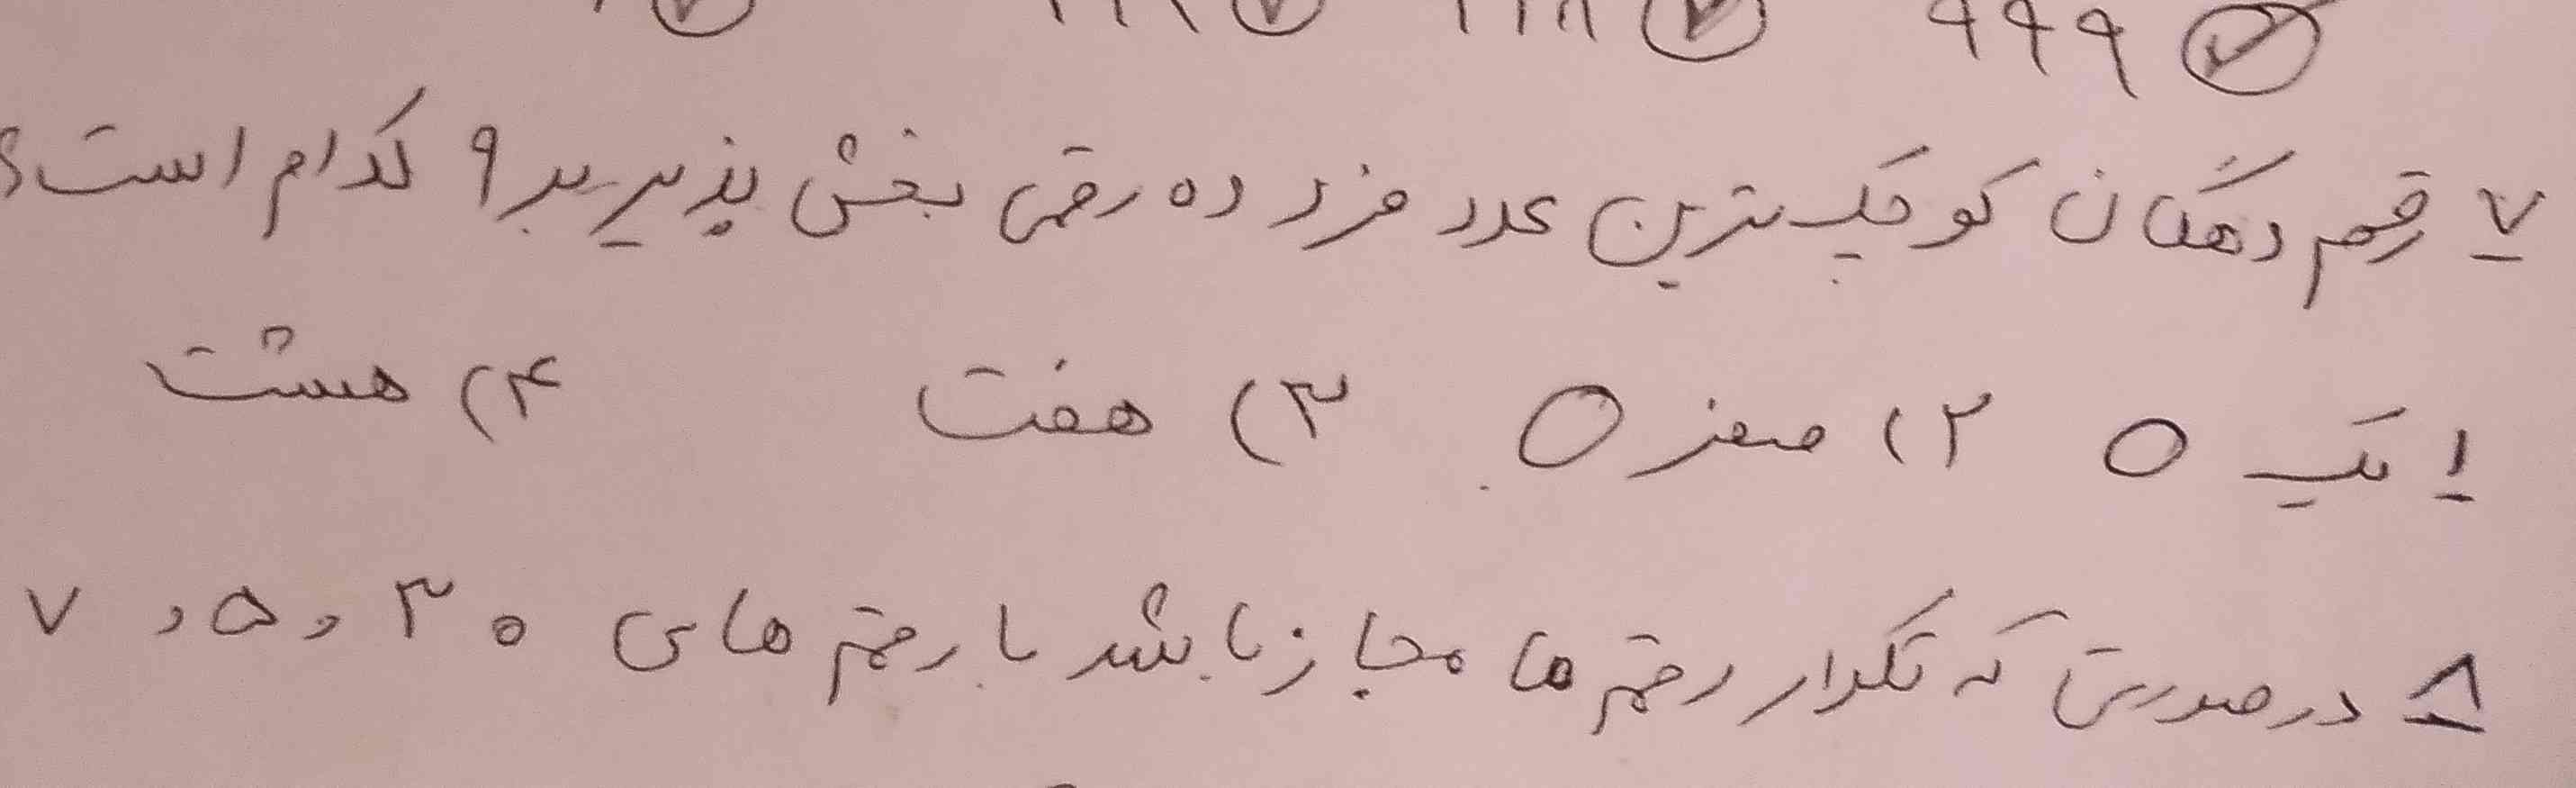 ۹۹۹
۷ رقم دهگان کوچک ترین عدد فرد ده رقمی بخش پذیر بر ۹ کدام است؟
۱ یک ۲) صفر ۳) هفت ۴) هشت
۸ در صورتی که تکرار رقم ها مجاز نباشد با رقم های ۰ ۳ و ۵ و ۷